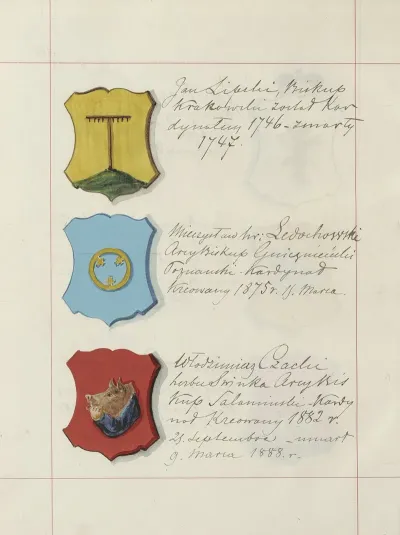 Jan Lipski, Biskup
Krakowski został Kar
dynałem 1746 – zmarły
1747.
Mieczysław hr: Ledochowski
ArcyBiskup Gnieźnieński
Poznański. Kardynał
Kreowany 1875 r. 15 Marca.
Włodzimierz Czacki
herbu Świnka ArcyBis
kup Salaminski – Kardy
nał Kreowany 1882 r.
25 Septembra – umarł
9. Marca 1888. r.